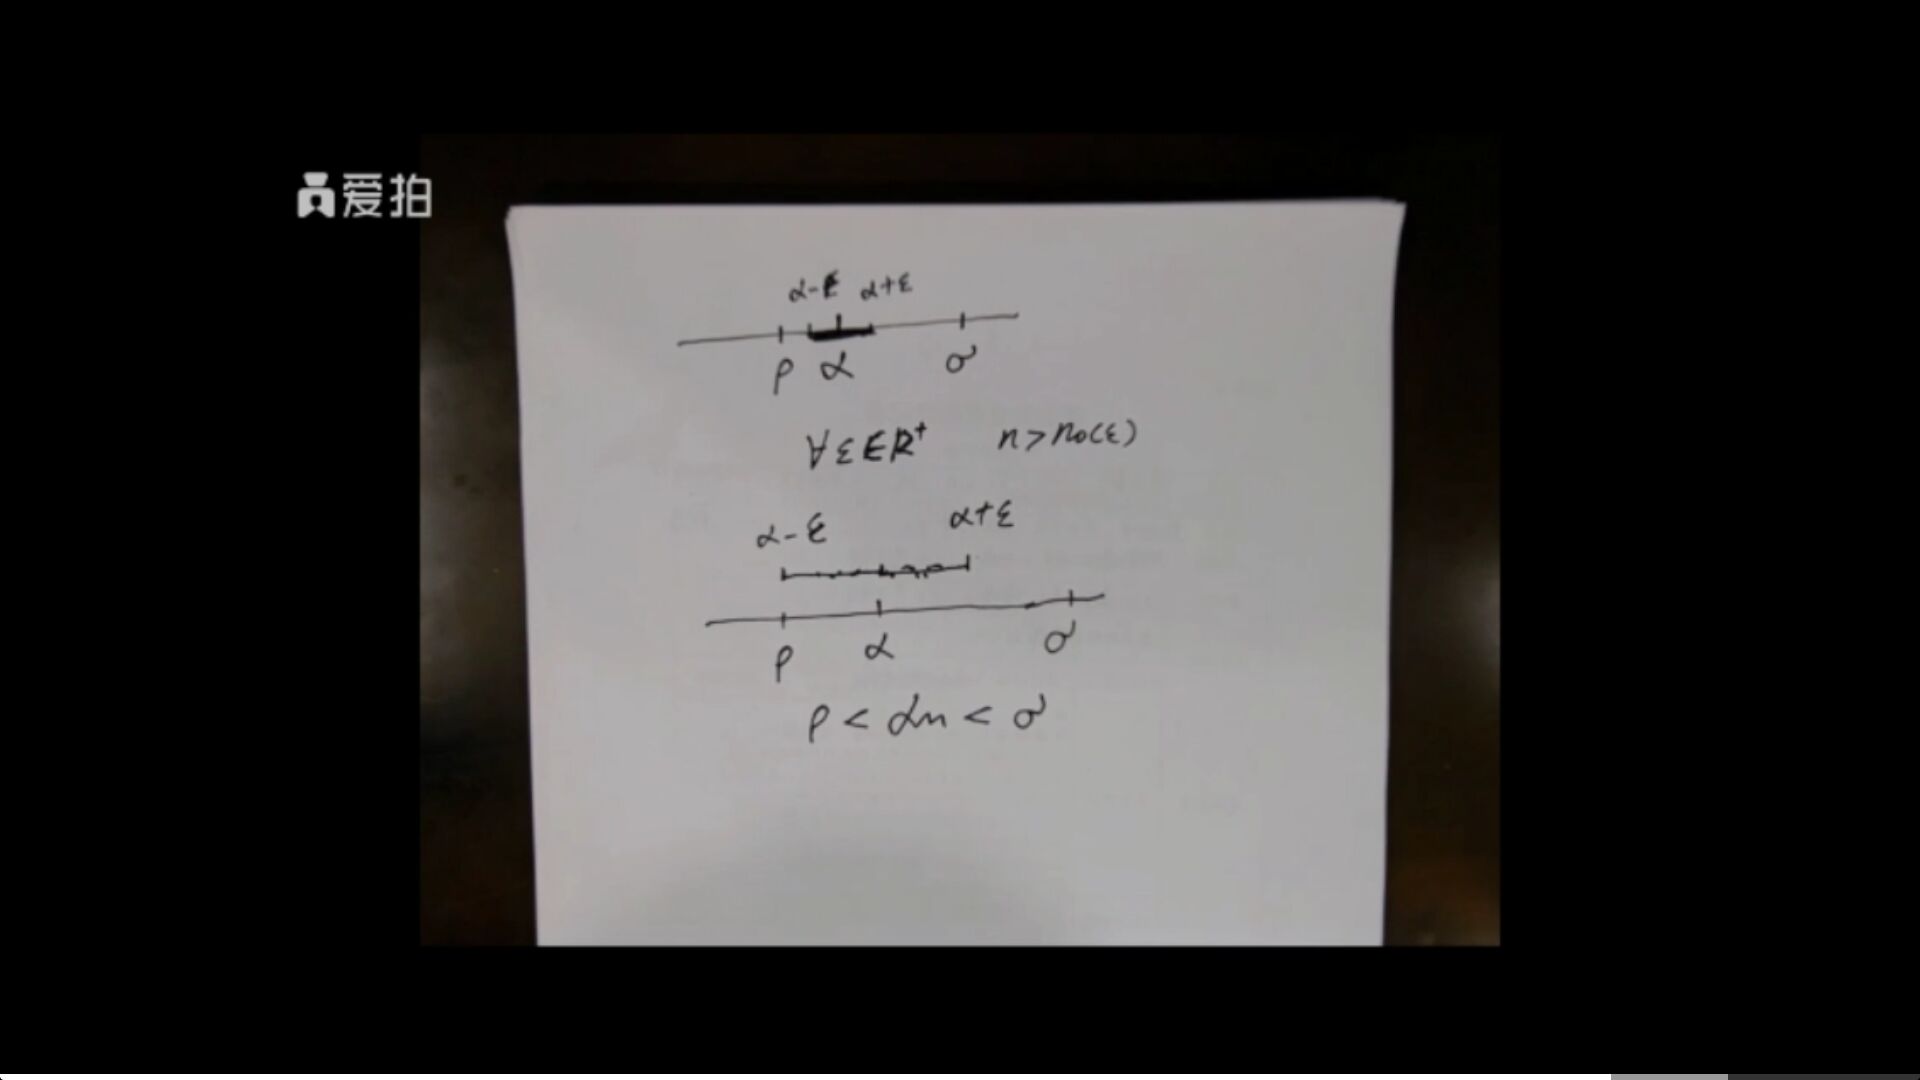 爱拍
α-ε α+ε
ρ α σ
∀ε∈R⁺ n>n₀(ε)
α-ε α+ε
ρ α σ
ρ < αn < σ